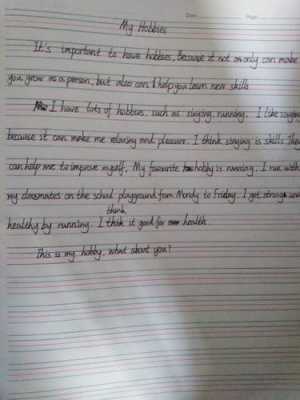 Date Page
My Hobbies
It's important to have hobbies, Because it not only can make
you grow as a person, but also can help you learn new skills
I have lots of hobbies. such as singing, running. I like singing
because it can make me relaxing and pleasure. I think singing is skills. They
can help me to improve myself. My favourite hobby is running. I run with
my classmates on the school playground from Monday to Friday. I get strong and
healthy by running. I think it good for health
This is my hobby, what about you?